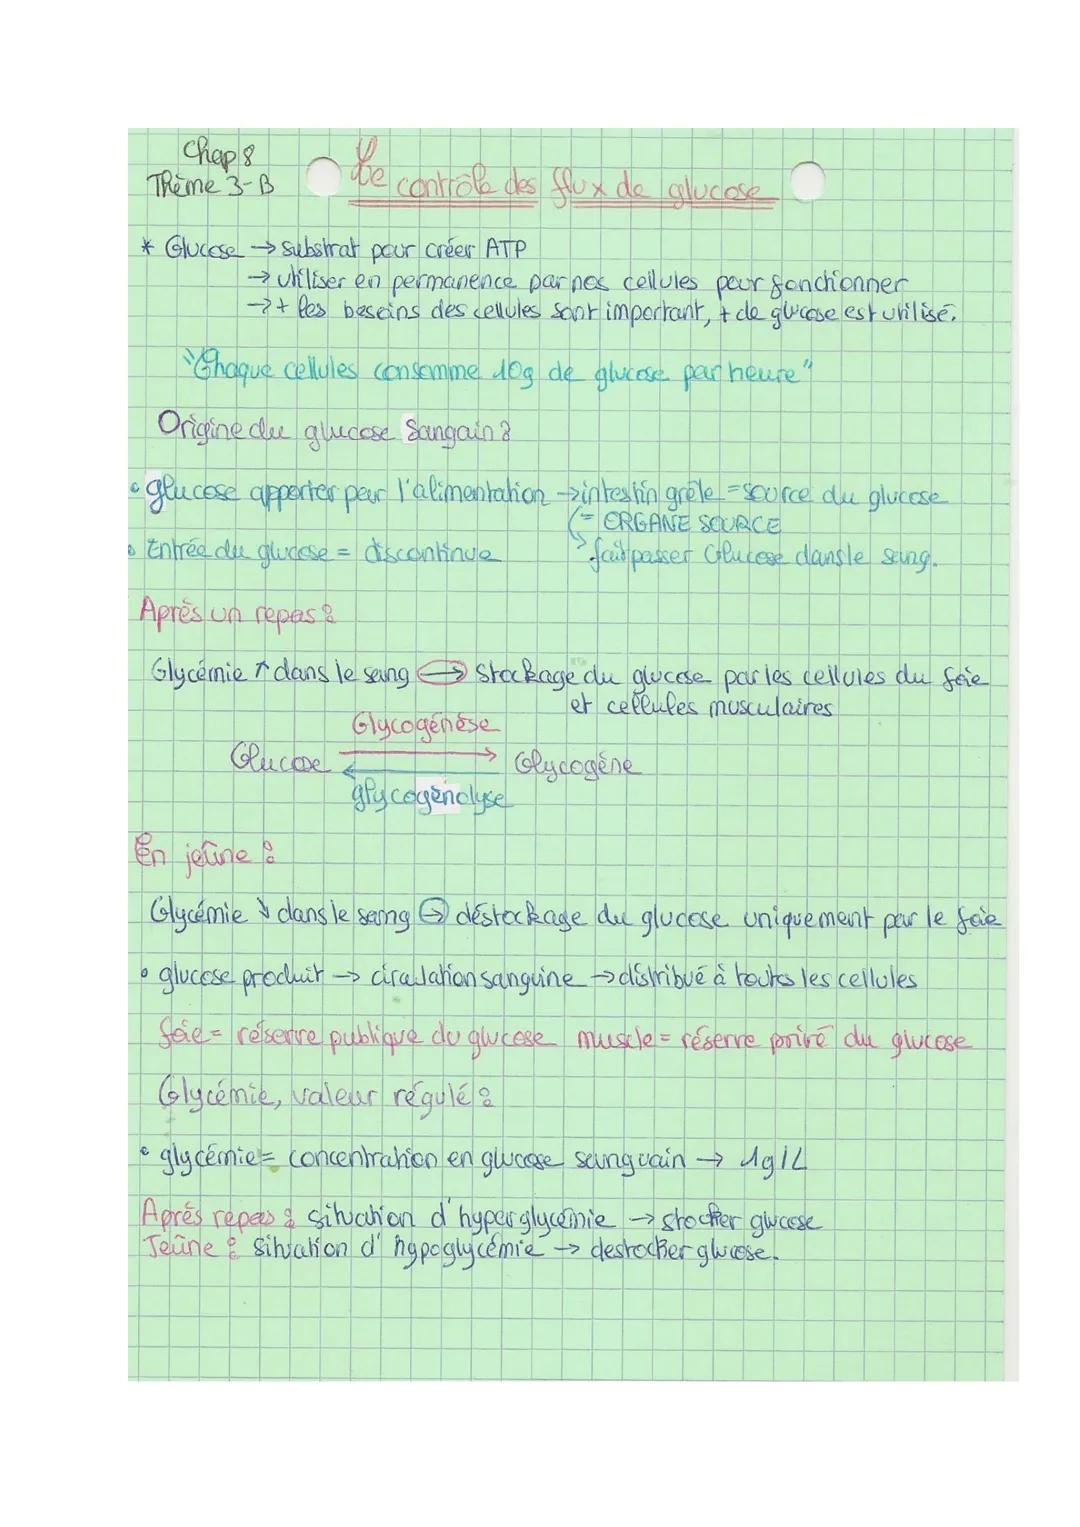 Chap 8
Thème 3-B
Le contrôle des flux de glucose
* Glucose → substrat pour créer ATP
→ utiliser en permanence par nos cellules pour fonctionner
→ + les besoins des cellules sont important, + de glucose est utilisé.
"Chaque cellules consomme 10g de glucose par heure"
Origine du glucose sanguin :
• glucose apporter par l'alimentation → intestin grêle = source du glucose
= ORGANE SOURCE
• Entrée du glucose = discontinue
→ fait passer Glucose dans le sang.
Après un repas :
Glycémie ↑ dans le sang → Stockage du glucose par les cellules du foie
et cellules musculaires
Glycogénèse
Glucose ⇄ Glycogène
glycogénolyse
En jeûne :
Glycémie ↓ dans le sang → déstockage du glucose uniquement par le foie
• glucose produit → circulation sanguine → distribué à toutes les cellules
foie = réserve publique du glucose muscle = réserve privé du glucose
Glycémie, valeur régulé :
• glycémie = concentration en glucose sanguain → 1g/L
Après repas : situation d'hyperglycémie → stocker glucose
Jeûne : situation d'hypoglycémie → destocker glucose.